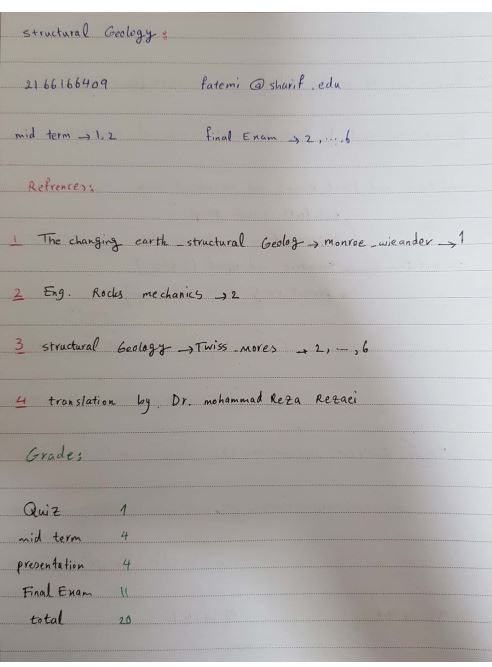 structural Geology :
2166166409 fatemi @ sharif .edu
mid term → 1,2 final Exam → 2, ..., 6
Refrences:
1 The changing earth _ structural Geolog → monroe _ wieander → 1
2 Eng. Rocks mechanics → 2
3 structural Geology → Twiss _ mores → 2, ..., 6
4 translation by Dr. mohammad Reza Rezaei
Grade:
Quiz 1
mid term 4
presentation 4
Final Exam 11
total 20